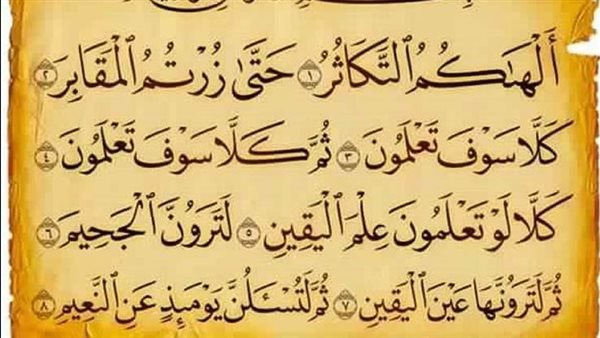 أَلْهَىٰكُمُ ٱلتَّكَاثُرُ ١ حَتَّىٰ زُرْتُمُ ٱلْمَقَابِرَ ٢
كَلَّا سَوْفَ تَعْلَمُونَ ٣ ثُمَّ كَلَّا سَوْفَ تَعْلَمُونَ ٤
كَلَّا لَوْ تَعْلَمُونَ عِلْمَ ٱلْيَقِينِ ٥ لَتَرَوُنَّ ٱلْجَحِيمَ ٦
ثُمَّ لَتَرَوُنَّهَا عَيْنَ ٱلْيَقِينِ ٧ ثُمَّ لَتُسْـَٔلُنَّ يَوْمَئِذٍ عَنِ ٱلنَّعِيمِ ٨